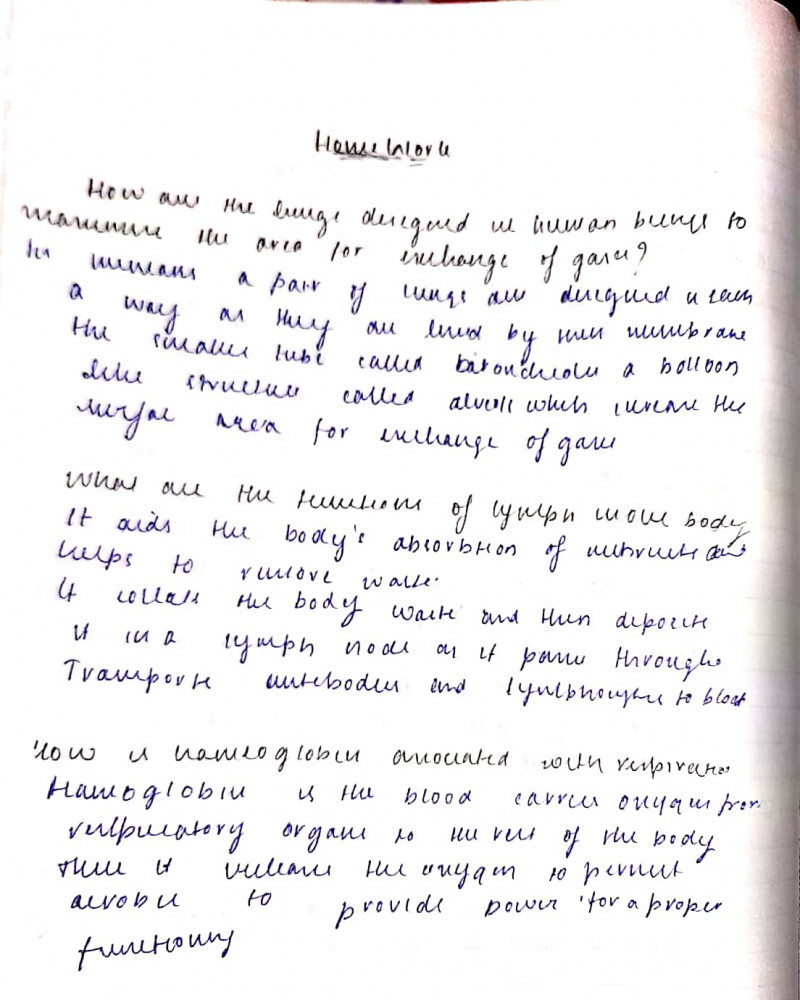 Home Work
How are the lungs designed in human beings to
maximise the area for exchange of gases?
In humans a pair of lungs are designed in such
a way as they are lined by thin membrane
the smaller tube called a balloon
like structure called alveoli which increase the
surface area for exchange of gases
What are the functions of lymph in our body
It aids the body's absorbtion of nutrients and
helps to remove waste.
It collects the body waste and then deposits
it in a lymph node as it passes through
Transports antibodies and lymphocytes to blood
How is haemoglobin associated with respiration
Haemoglobin is the blood carries oxygen from
respiratory organs to the rest of the body
There it release the oxygen to permit
aerobic to provide power for a proper
functioning